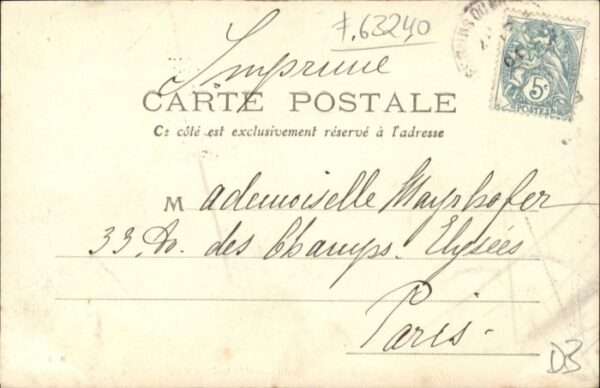 F.63240
Imprimé
5c
POSTES
CARTE POSTALE
Ce côté est exclusivement réservé à l'adresse
Mademoiselle Mayrhofer
33. Av. des Champs. Elysées
Paris-
DB